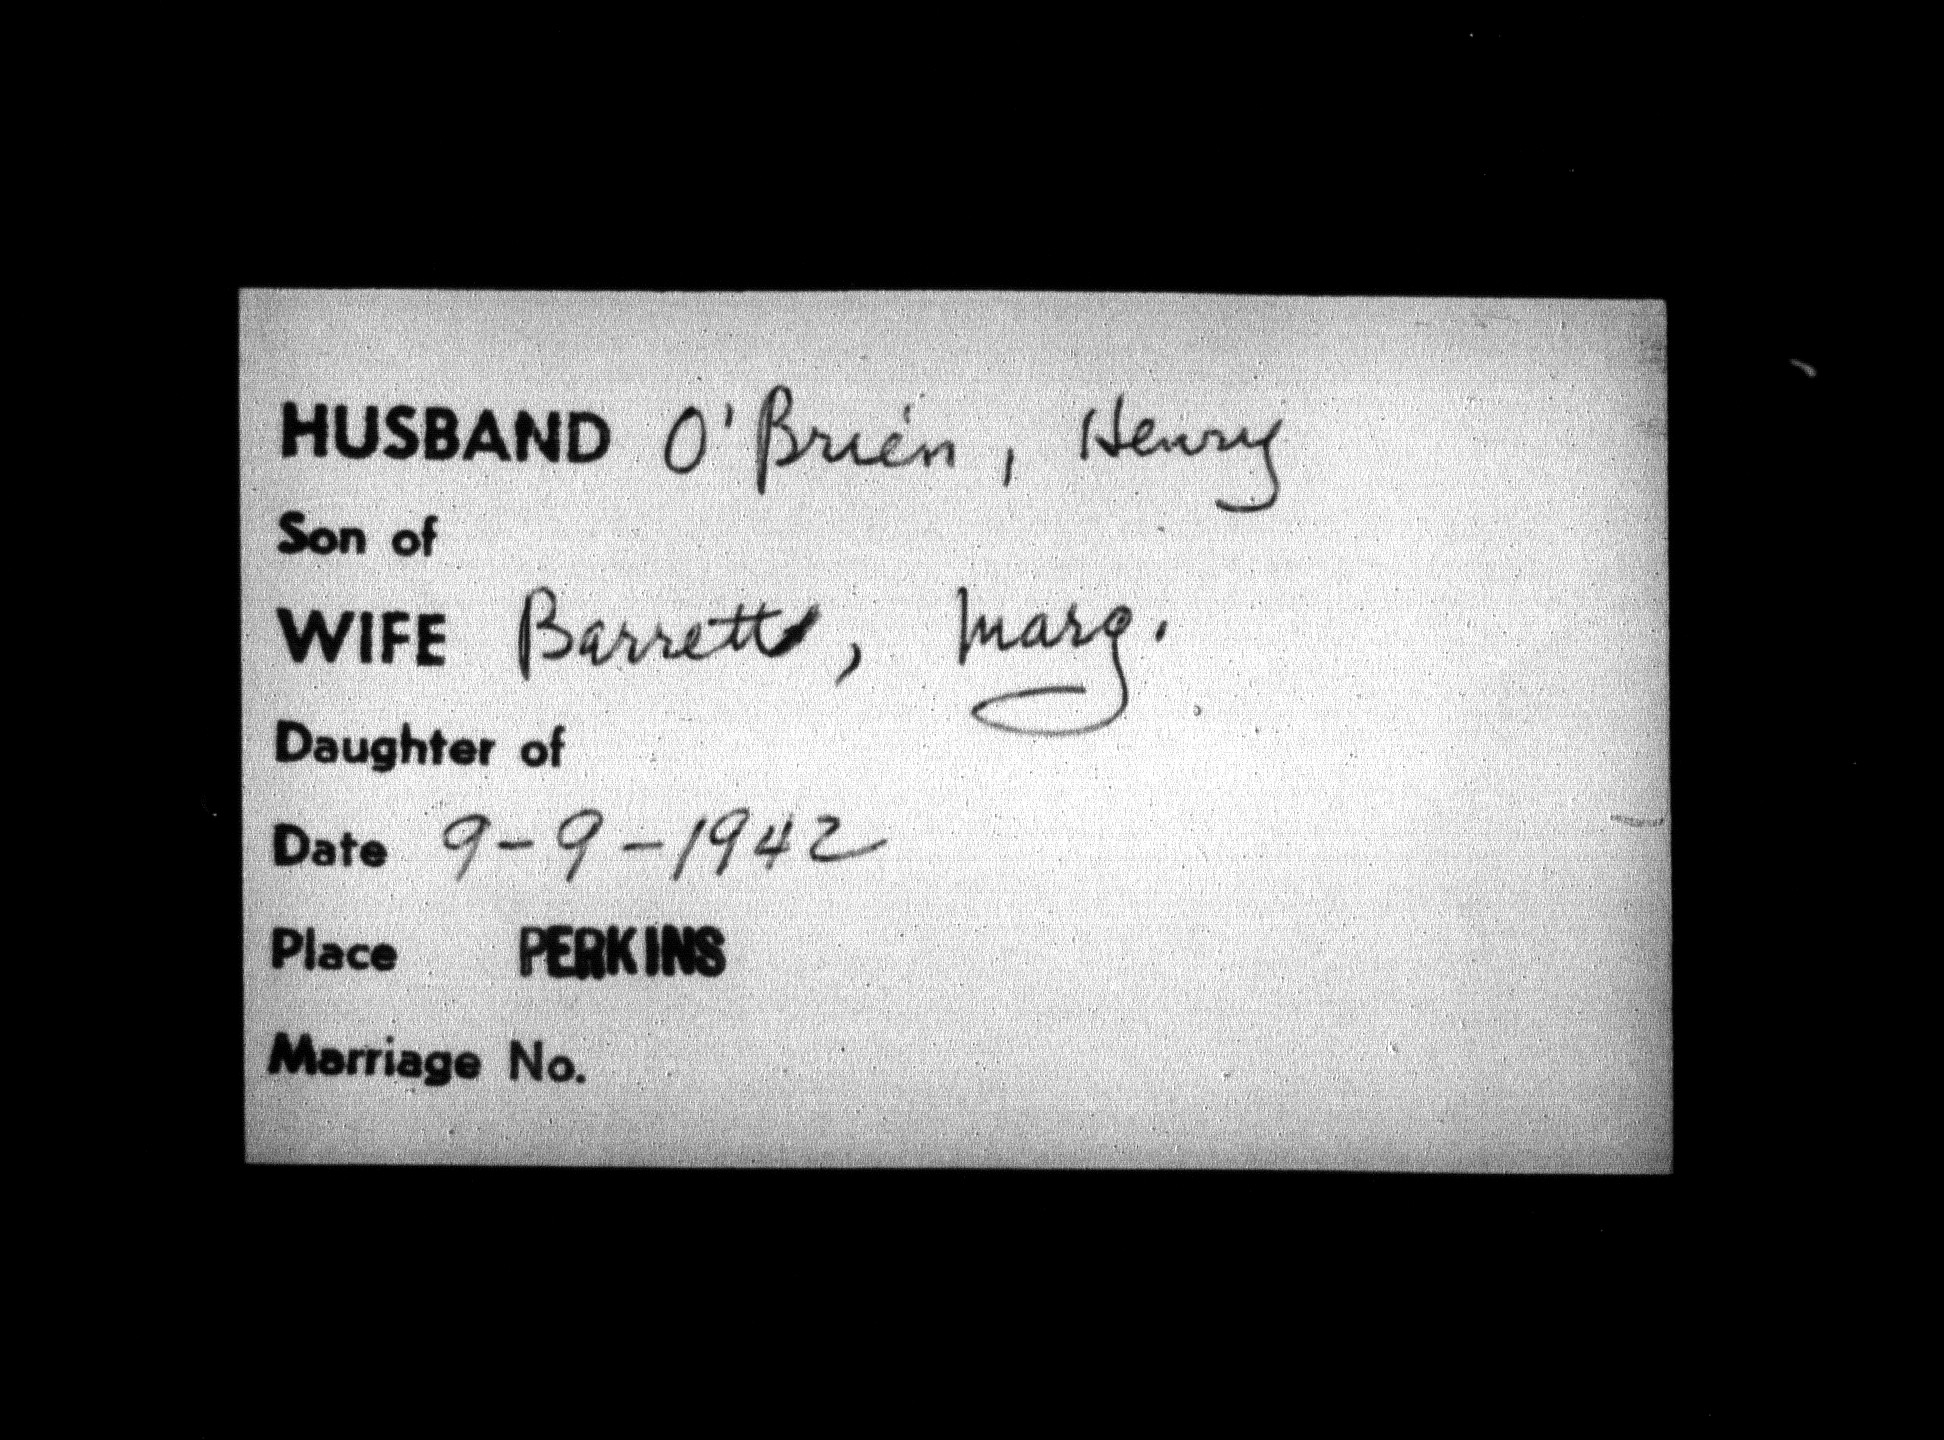 HUSBAND O'Brien, Henry
Son of
WIFE Barrett, Marg.
Daughter of
Date 9-9-1942
Place PERKINS
Marriage No.